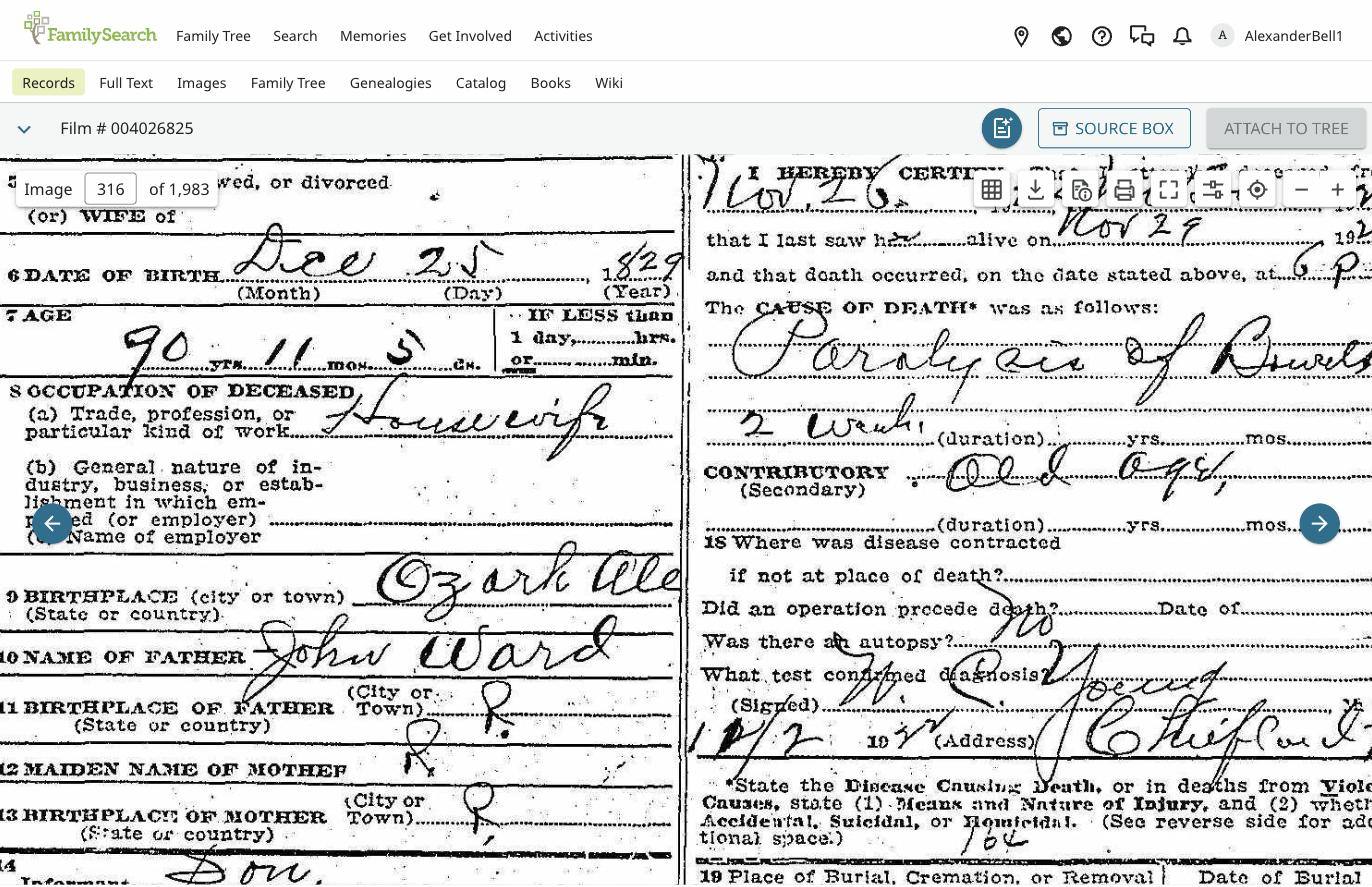 FamilySearch Family Tree Search Memories Get Involved Activities A AlexanderBell1
Records Full Text Images Family Tree Genealogies Catalog Books Wiki
Film # 004026825 SOURCE BOX ATTACH TO TREE
Image 316 of 1,983
wed, or divorced
(or) WIFE of
6 DATE OF BIRTH Dec 25, 1829
(Month) (Day) (Year)
7 AGE IF LESS than
1 day, hrs.
90 yrs. 11 mos. 5 ds. or min.
8 OCCUPATION OF DECEASED
(a) Trade, profession, or
particular kind of work Housewife
(b) General nature of in-
dustry, business, or estab-
lishment in which em-
ed (or employer)
Name of employer
9 BIRTHPLACE (city or town) Ozark Ala
(State or country)
10 NAME OF FATHER John Ward
(City or
11 BIRTHPLACE OF FATHER Town) R.
(State or country)
12 MAIDEN NAME OF MOTHER R.
(City or
13 BIRTHPLACE OF MOTHER Town) R.
(State or country)
14
Informant Son.
I HEREBY CERTIFY
Nov. 26.
that I last saw her alive on Nov 29 192
and that death occurred, on the date stated above, at 6 P.
The CAUSE OF DEATH* was as follows:
Paralysis of Bowels
2 weeks. (duration) yrs. mos.
CONTRIBUTORY Old age,
(Secondary)
(duration) yrs. mos.
18 Where was disease contracted
if not at place of death?
Did an operation precede death? No Date of
Was there an autopsy?
What test confirmed diagnosis?
(Signed) W. C. Young
19 (Address) Chiefland,
*State the Disease Causing Death, or in deaths from Viol
Causes, state (1) Means and Nature of Injury, and (2) wheth
Accidental, Suicidal, or Homicidal. (See reverse side for add
tional space.) 164
19 Place of Burial, Cremation, or Removal Date of Burial